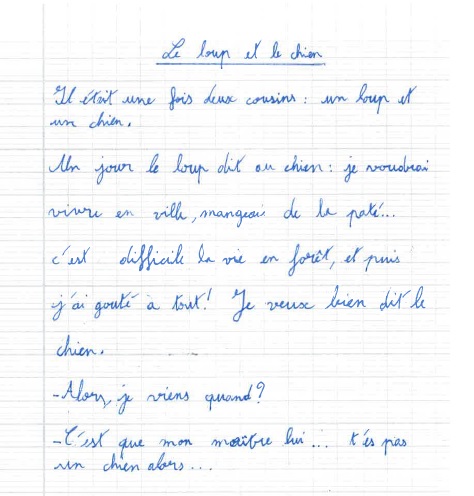 Le loup et le chien
Il était une fois deux cousins : un loup et
un chien.
Un jour le loup dit au chien : je voudrai
vivre en ville, mangeai de la paté...
c'est difficile la vie en forêt, et puis
j'ai gouté à tout! Je veux bien dit le
chien.
-Alors, je viens quand?
-C'est que mon maître lui... t'és pas
un chien alors...